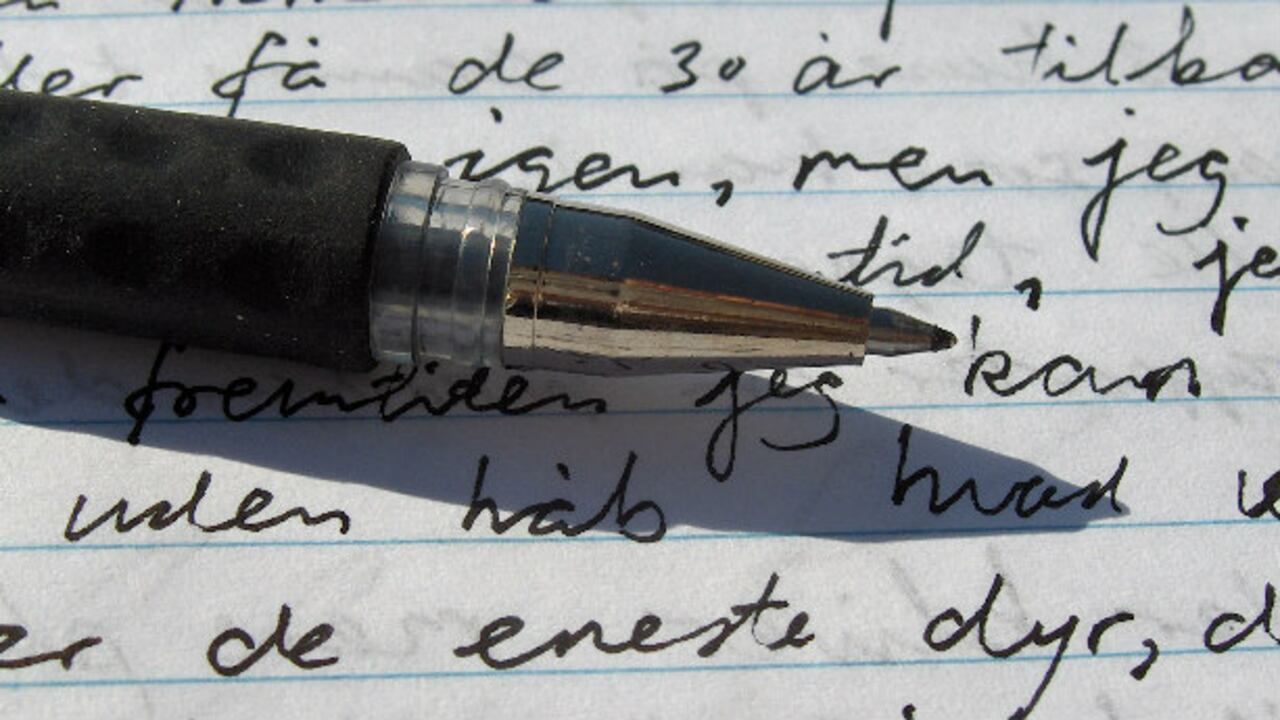 få de 30 år
igen, men jeg
tid,
fremtiden jeg kan
uden håb hvad
er de eneste dyr,